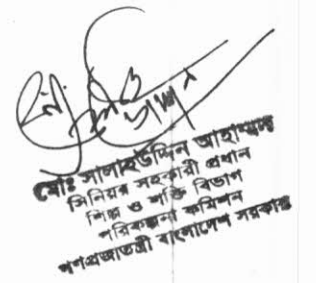 মোঃ সালাহউদ্দিন আহাম্মদ
সিনিয়র সহকারী প্রধান
শিল্প ও শক্তি বিভাগ
পরিকল্পনা কমিশন
গণপ্রজাতন্ত্রী বাংলাদেশ সরকার